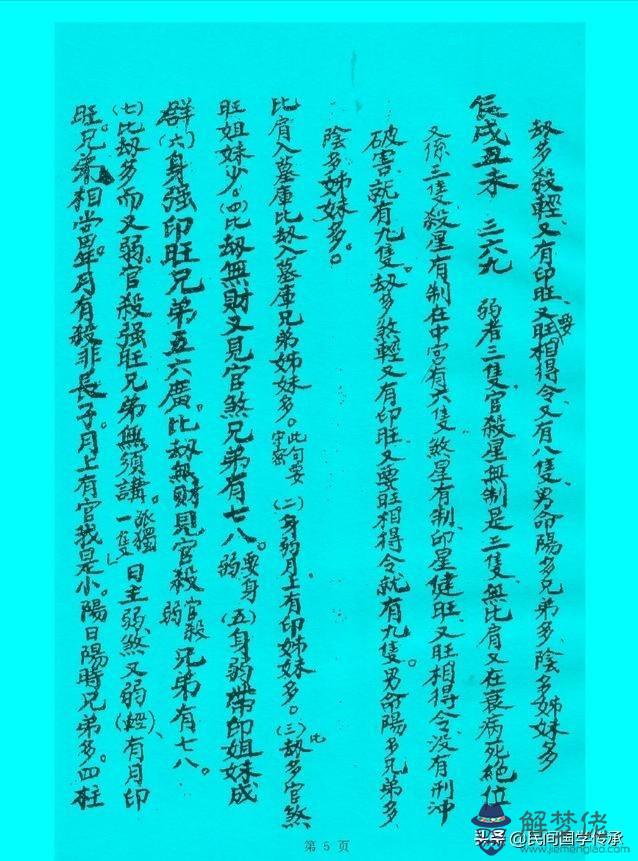 劫多殺輕又有印旺又要旺相得令又有八隻男命陽多兄弟多陰多姊妹多
辰戌丑未 三六九 弱者三隻官殺星無制是三隻無比肩又在衰病死絕位
又係三隻殺星有制在中字有六隻煞星有制印星健旺又旺相得令沒有刑沖
破害就有九隻。劫多煞輕又有印旺又要旺相得令就有九隻。男命陽多兄弟多
陰多姊妹多。
比肩入墓庫比劫入墓庫兄弟姊妹多。此句要守密(二)身弱月上有印姊妹多。(三)比劫多官煞
旺姐妹少。(四)比劫無財又見官煞兄弟有七八。要身弱(五)身弱帶印姐妹成
群(六)身强印旺兄弟五六廣。比劫無財見官殺官殺弱兄弟有七八。
(七)比劫多而又弱。官殺强旺兄弟無須講。孤獨一隻日主弱煞又弱(輕)、有月印
旺。兄弟相当年月有殺非長子月上有官我是小。陽日陽時兄弟多。四柱
第 5 页
头条 @民间国学传承
解梦佬
www.jiemenglao.com